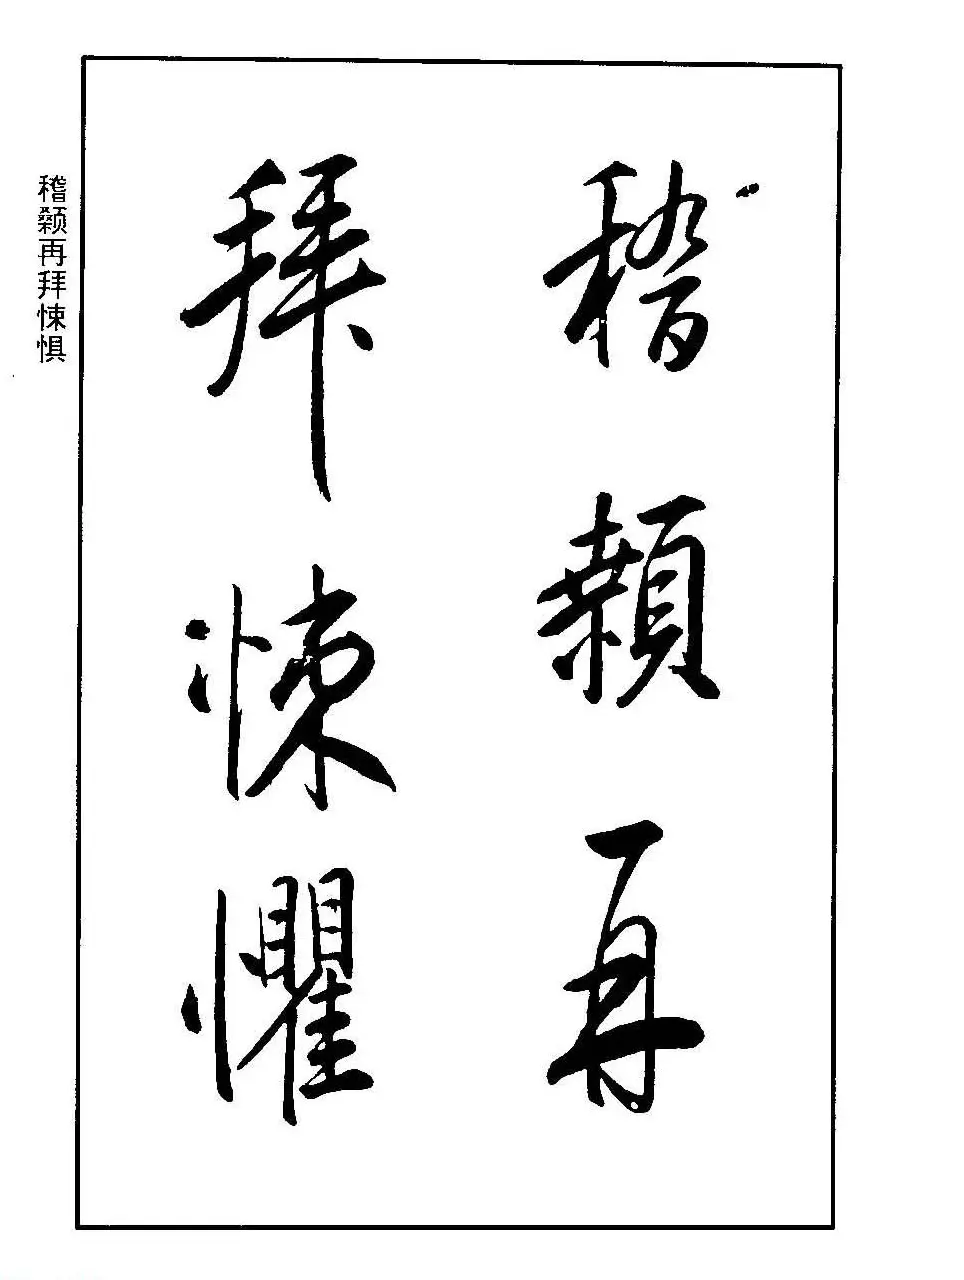 稽顙再
拜悚懼
稽颡再拜悚惧